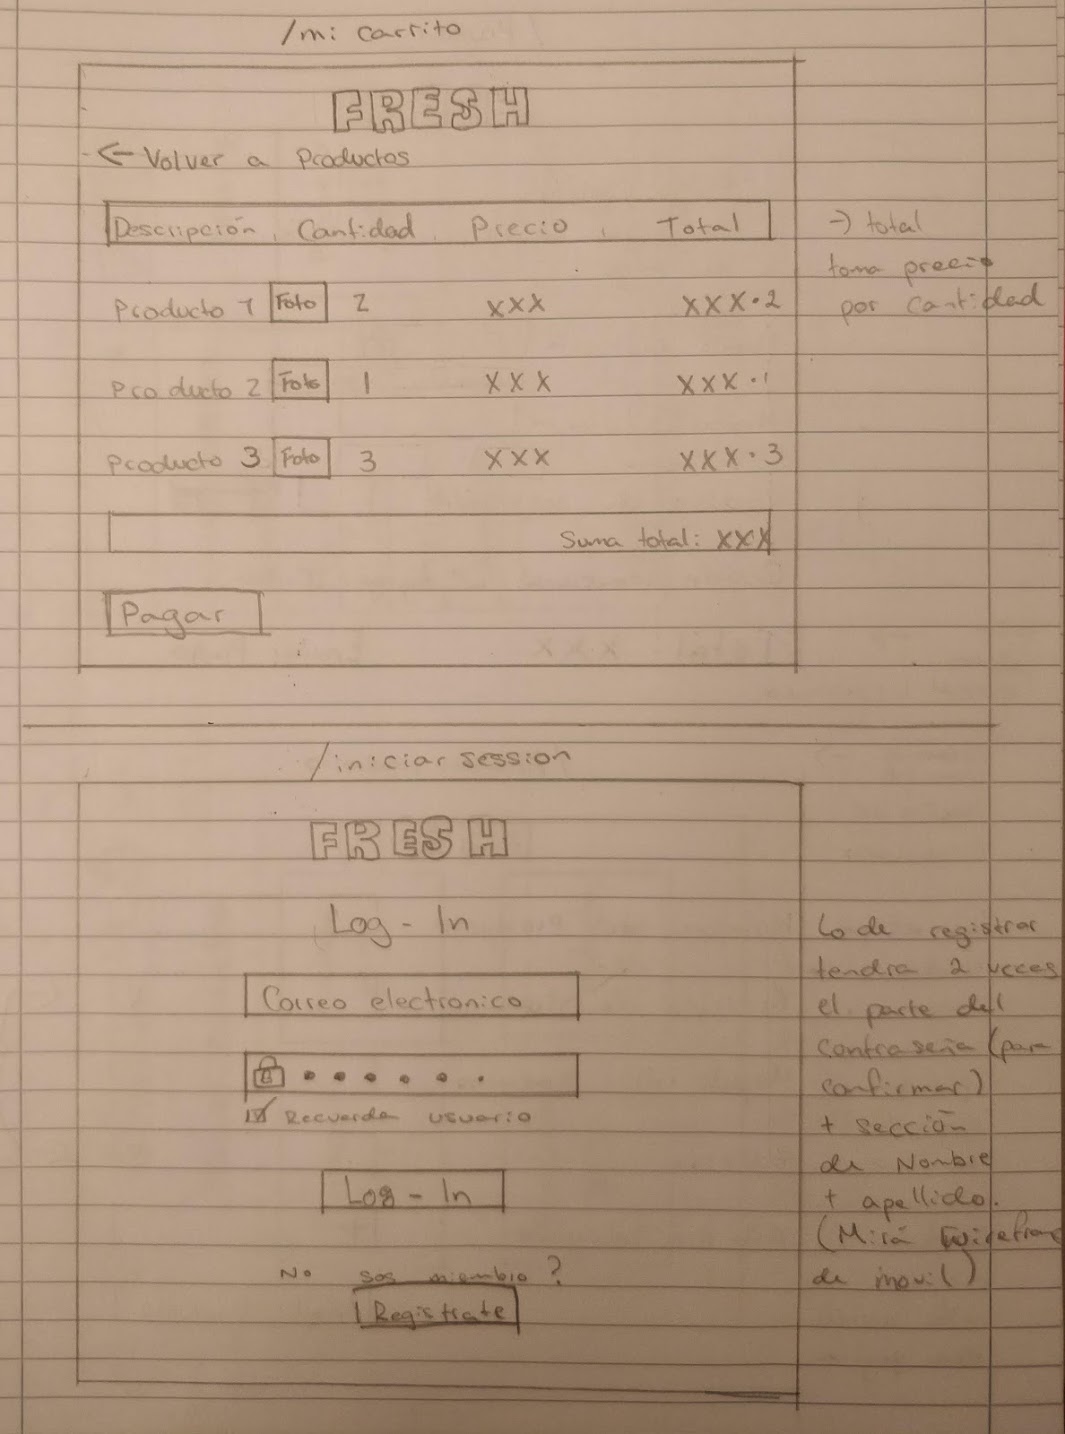 /mi carrito
FRESH
← Volver a Productos
Descripción, Cantidad, Precio, Total
→ total
toma precio
por cantidad
Producto 1 Foto 2 XXX XXX·2
Producto 2 Foto 1 XXX XXX·1
Producto 3 Foto 3 XXX XXX·3
Suma total: XXX
Pagar
/iniciar session
FRESH
Log-In
Correo electronico
Recuerda usuario
Log-In
No sos miembro?
Registrate
Lo de registrar
tendra 2 veces
el parte del
contraseña (para
confirmar)
+ sección
de Nombre
+ apellido.
(Mirá
de movil)